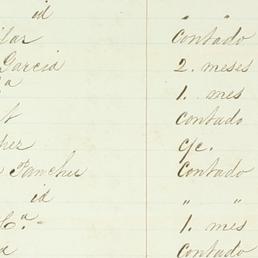 id " "
lar contado
Garcia 2. meses
a 1. mes
contado
her c/c.
Sanchez contado
id " "
Ca. - 1. mes
a contado